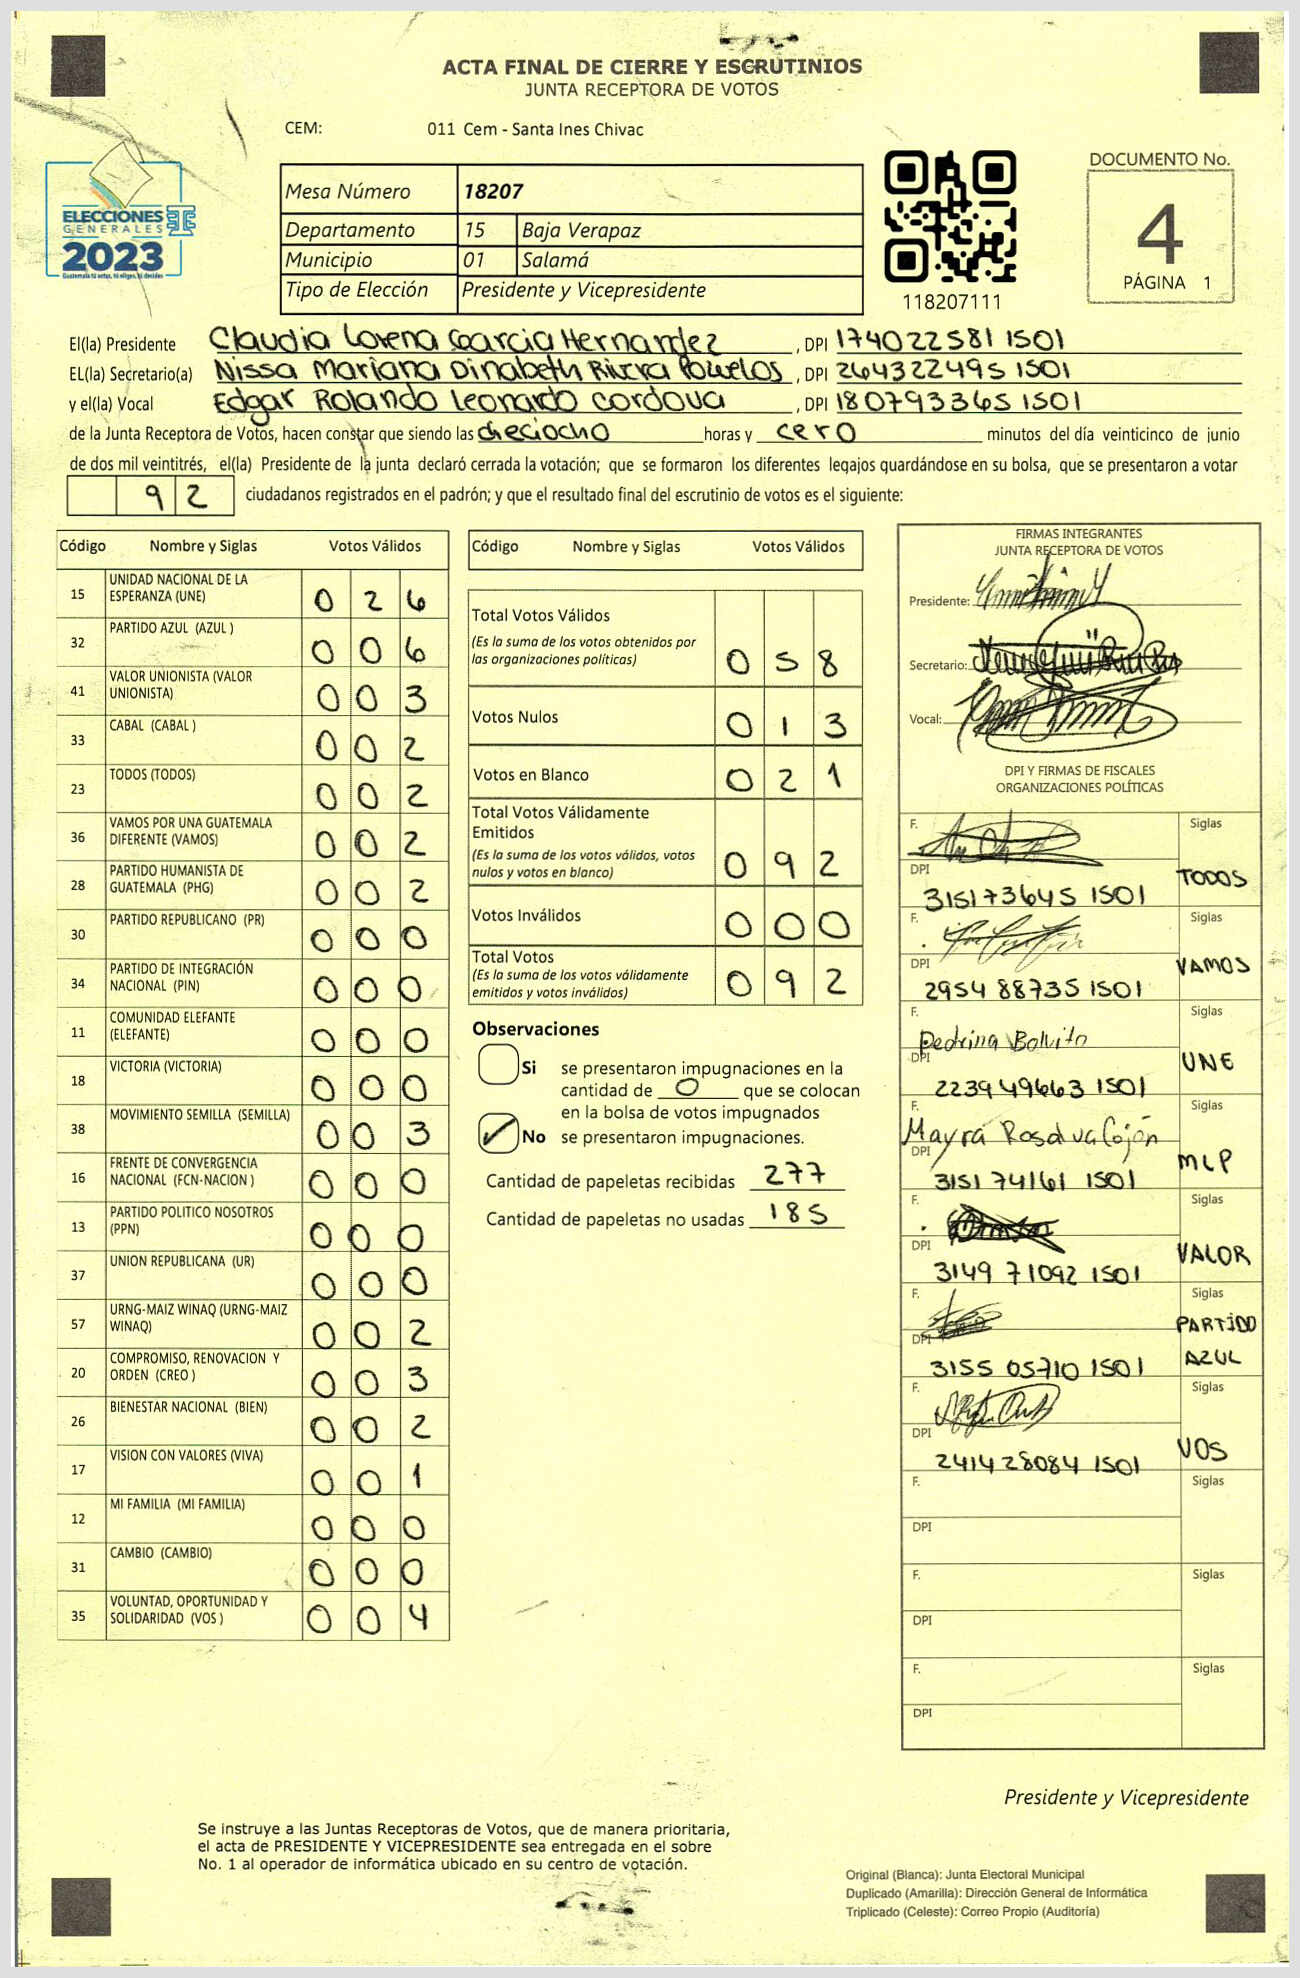 ACTA FINAL DE CIERRE Y ESCRUTINIOS
JUNTA RECEPTORA DE VOTOS
CEM: 011 Cem - Santa Ines Chivac
ELECCIONES
GENERALES
2023
Guatemala tú votas, tú eliges, tú decides
Mesa Número 18207
Departamento 15 Baja Verapaz
Municipio 01 Salamá
Tipo de Elección Presidente y Vicepresidente
118207111
DOCUMENTO No.
4
PÁGINA 1
El(la) Presidente Claudia Lorena Garcia Hernandez, DPI 174022581 1501
EL(la) Secretario(a) Nissa Mariana Dinabeth Rivera, DPI 264322495 1501
y el(la) Vocal Edgar Rolando Leonardo Cordova, DPI 180793365 1501
de la Junta Receptora de Votos, hacen constar que siendo las dieciocho horas y cero minutos del día veinticinco de junio
de dos mil veintitrés, el(la) Presidente de la junta declaró cerrada la votación; que se formaron los diferentes legajos guardándose en su bolsa, que se presentaron a votar
92 ciudadanos registrados en el padrón; y que el resultado final del escrutinio de votos es el siguiente:
Código Nombre y Siglas Votos Válidos
15 UNIDAD NACIONAL DE LA ESPERANZA (UNE) 0 2 6
32 PARTIDO AZUL (AZUL ) 0 0 6
41 VALOR UNIONISTA (VALOR UNIONISTA) 0 0 3
33 CABAL (CABAL ) 0 0 2
23 TODOS (TODOS) 0 0 2
36 VAMOS POR UNA GUATEMALA DIFERENTE (VAMOS) 0 0 2
28 PARTIDO HUMANISTA DE GUATEMALA (PHG) 0 0 2
30 PARTIDO REPUBLICANO (PR) 0 0 0
34 PARTIDO DE INTEGRACIÓN NACIONAL (PIN) 0 0 0
11 COMUNIDAD ELEFANTE (ELEFANTE) 0 0 0
18 VICTORIA (VICTORIA) 0 0 0
38 MOVIMIENTO SEMILLA (SEMILLA) 0 0 3
16 FRENTE DE CONVERGENCIA NACIONAL (FCN-NACION ) 0 0 0
13 PARTIDO POLITICO NOSOTROS (PPN) 0 0 0
37 UNION REPUBLICANA (UR) 0 0 0
57 URNG-MAIZ WINAQ (URNG-MAIZ WINAQ) 0 0 2
20 COMPROMISO, RENOVACION Y ORDEN (CREO ) 0 0 3
26 BIENESTAR NACIONAL (BIEN) 0 0 2
17 VISION CON VALORES (VIVA) 0 0 1
12 MI FAMILIA (MI FAMILIA) 0 0 0
31 CAMBIO (CAMBIO) 0 0 0
35 VOLUNTAD, OPORTUNIDAD Y SOLIDARIDAD (VOS ) 0 0 4
Código Nombre y Siglas Votos Válidos
Total Votos Válidos 0 5 8
(Es la suma de los votos obtenidos por
las organizaciones políticas)
Votos Nulos 0 1 3
Votos en Blanco 0 2 1
Total Votos Válidamente
Emitidos 0 9 2
(Es la suma de los votos válidos, votos
nulos y votos en blanco)
Votos Inválidos 0 0 0
Total Votos 0 9 2
(Es la suma de los votos válidamente
emitidos y votos inválidos)
Observaciones
Si se presentaron impugnaciones en la
cantidad de 0 que se colocan
en la bolsa de votos impugnados
No se presentaron impugnaciones.
Cantidad de papeletas recibidas 277
Cantidad de papeletas no usadas 185
FIRMAS INTEGRANTES
JUNTA RECEPTORA DE VOTOS
Presidente:
Secretario:
Vocal:
DPI Y FIRMAS DE FISCALES
ORGANIZACIONES POLÍTICAS
F. Siglas
DPI 315173645 1501 TODOS
F. Siglas
DPI 2954 88735 1501 VAMOS
F. Pedrina Bolvito Siglas
DPI 2239 49663 1501 UNE
F. Mayra Rosalva Cojón Siglas
DPI 3151 74161 1501 MLP
F. Siglas
DPI 3149 71092 1501 VALOR
F. Siglas
DPI 3155 05710 1501 PARTIDO AZUL
F. Siglas
DPI 2414 28084 1501 VOS
F. Siglas
DPI
F. Siglas
DPI
F. Siglas
DPI
Presidente y Vicepresidente
Se instruye a las Juntas Receptoras de Votos, que de manera prioritaria,
el acta de PRESIDENTE Y VICEPRESIDENTE sea entregada en el sobre
No. 1 al operador de informática ubicado en su centro de votación.
Original (Blanca): Junta Electoral Municipal
Duplicado (Amarilla): Dirección General de Informática
Triplicado (Celeste): Correo Propio (Auditoría)